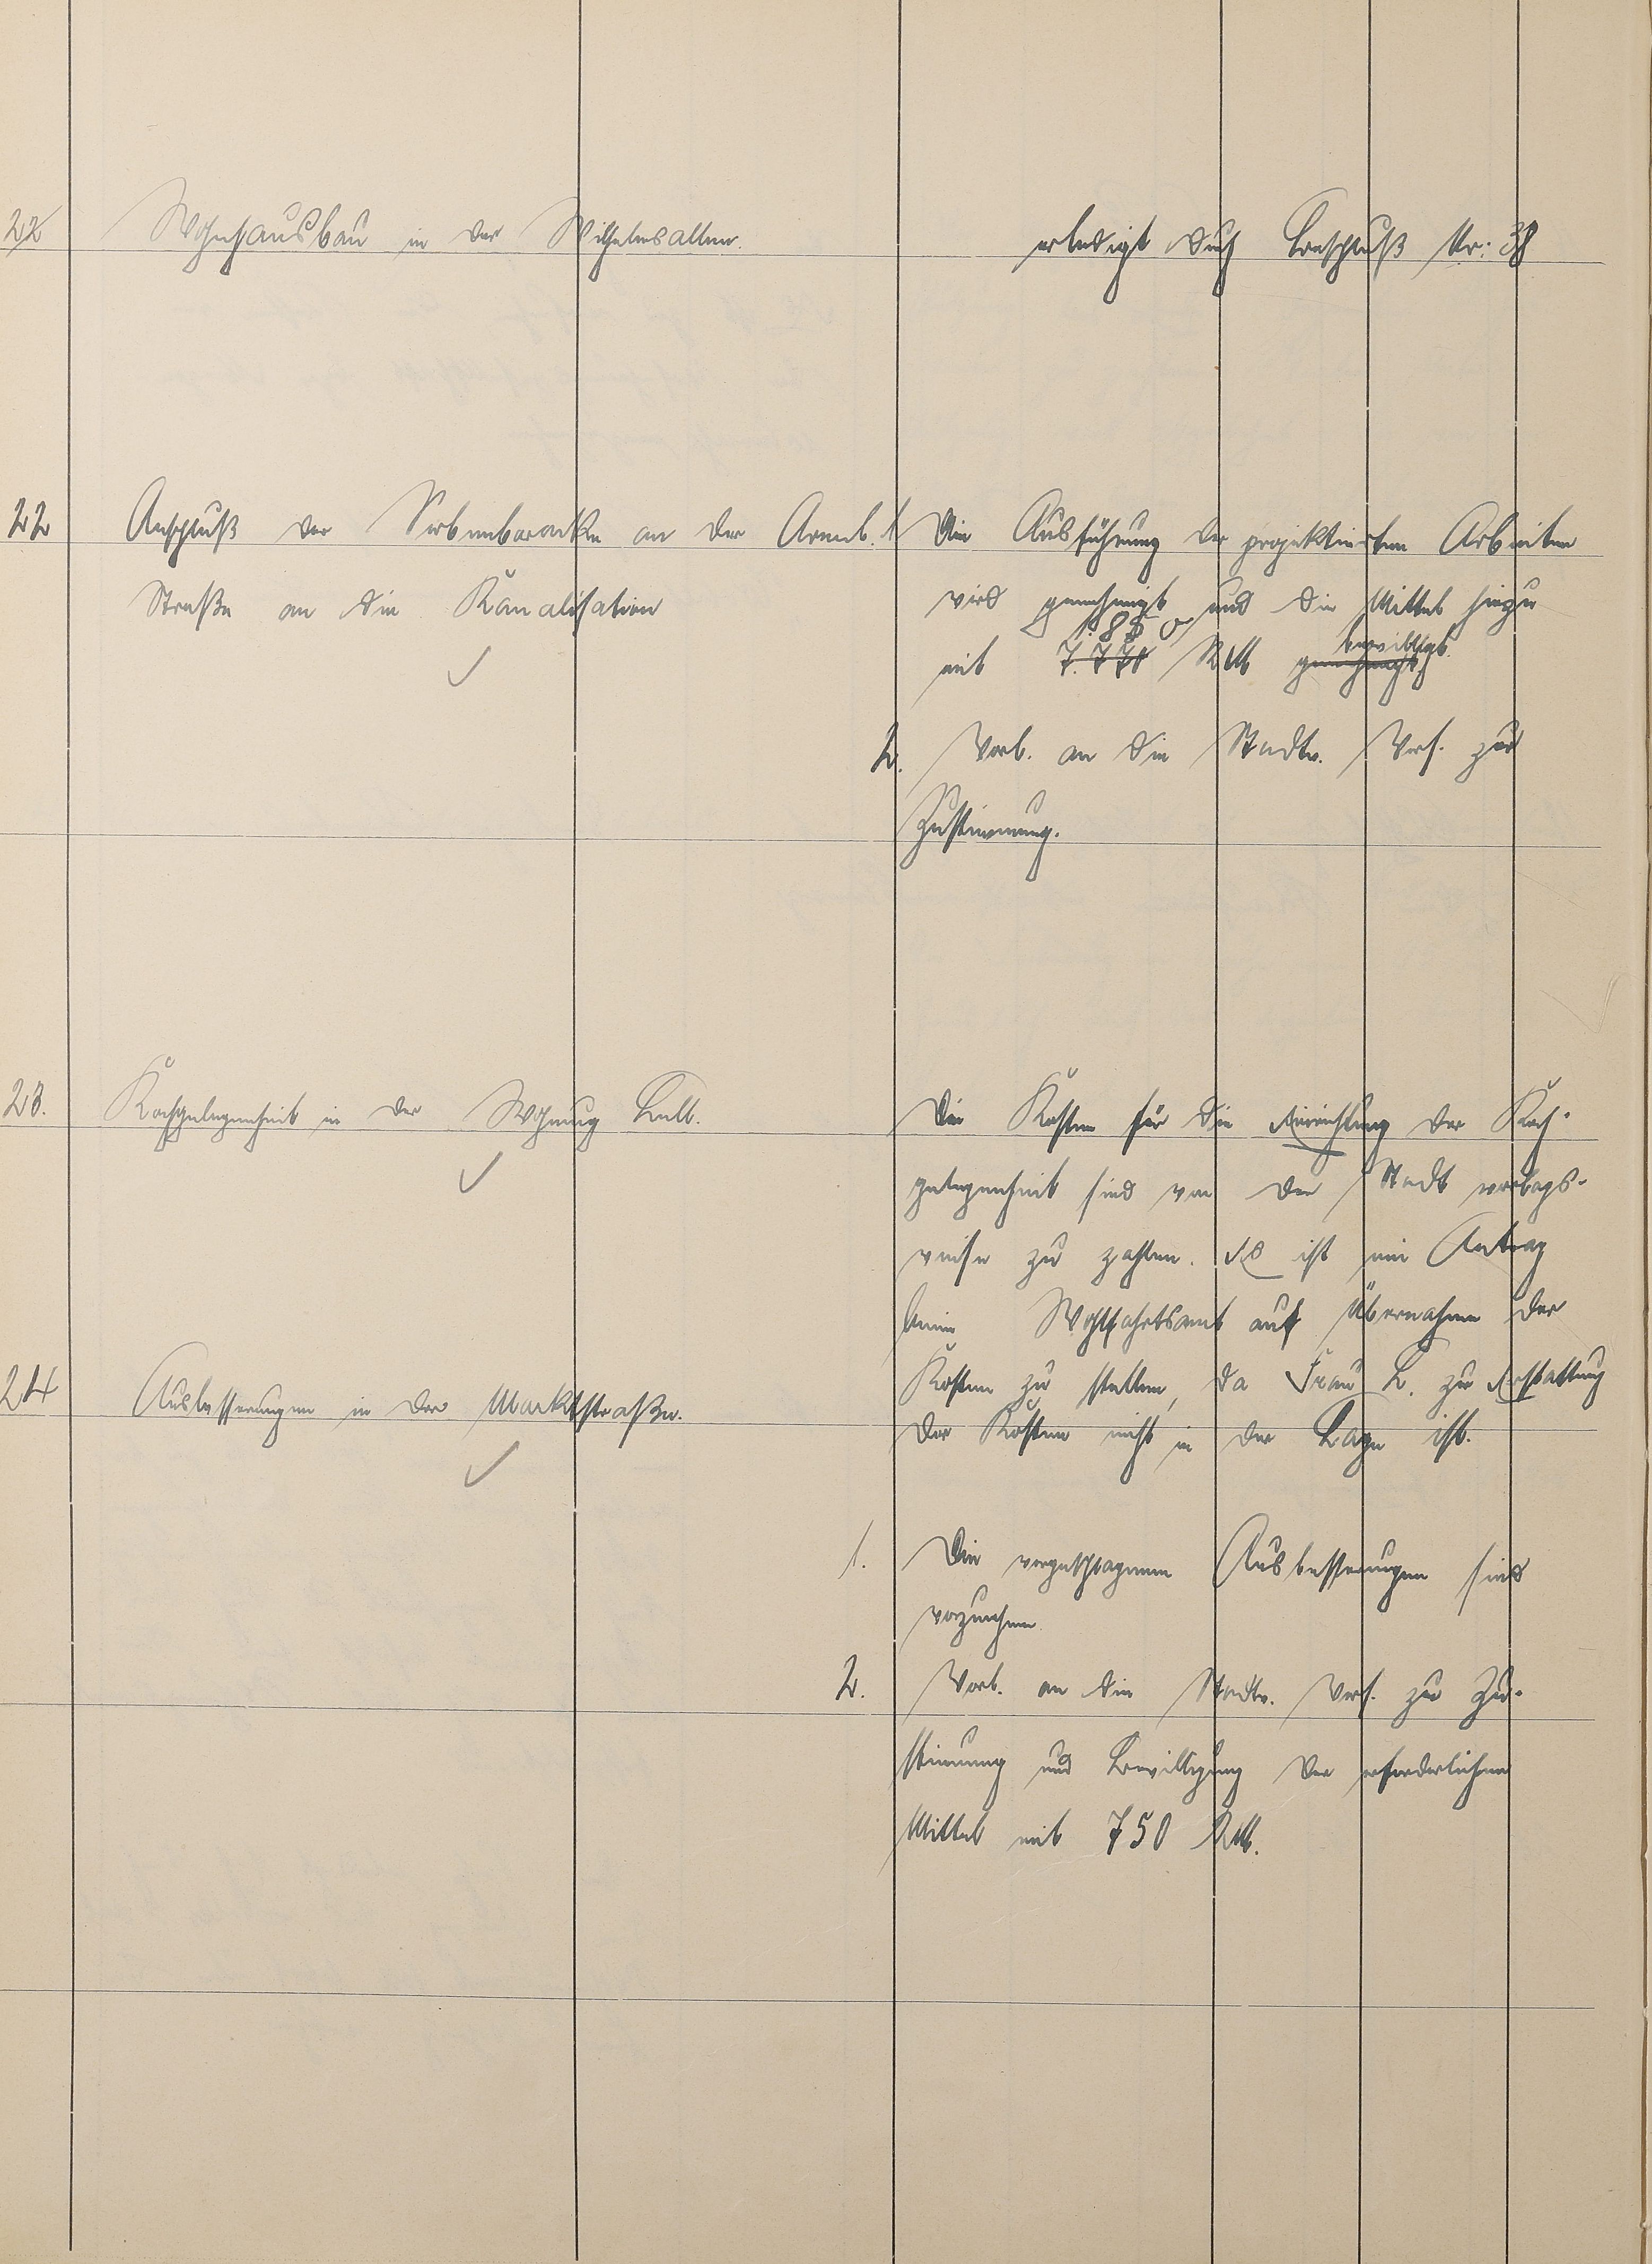 22 Wohnhausbau in der Wilhelmsallee.
erledigt durch Beschluß Nr: 38
22 Anschluß der Serbenbaracke an der Arndt.
Straße an die Kanalisation
1 Die Ausführung der projektierten Arbeiten
wird genehmigt und die Mittel hiezu
mit 7.770 RM genehmigt bewilligt.
2. Vorl. an die Stadtv. Vers. zur
Zustimmung.
23. Kochgelegenheit in der Wohnung Lull.
Die Kosten für die Einrichtung der Koch-
gelegenheit sind von der Stadt vorlags-
weise zu zahlen. Es ist ein Antrag
beim Wohlfahrtsamt auf Übernahme der
Kosten zu stellen, da Frau L. zur Erstattung
der Kosten nicht in der Lage ist.
24 Ausbesserungen in der Marktstraße.
1. Die vorgeschlagenen Ausbesserungen sind
vorzunehmen
2. Vorl. an die Stadtv. Vers. zur Zu-
stimmung und Bewilligung der erforderlichen
Mittel mit 750 RM.